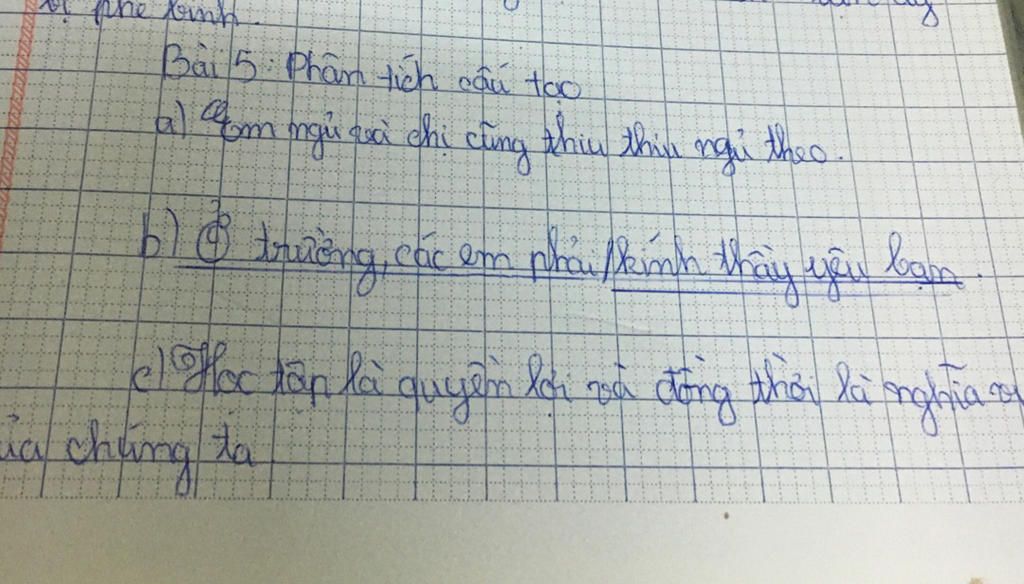 phê bình
Bài 5: Phân tích cấu tạo
a) Em ngủ và chị cũng thiu thiu ngủ theo.
b) Ở trường, các em phải / kính thầy yêu bạn.
c) Học tập là quyền lợi và đồng thời là nghĩa
của chúng ta